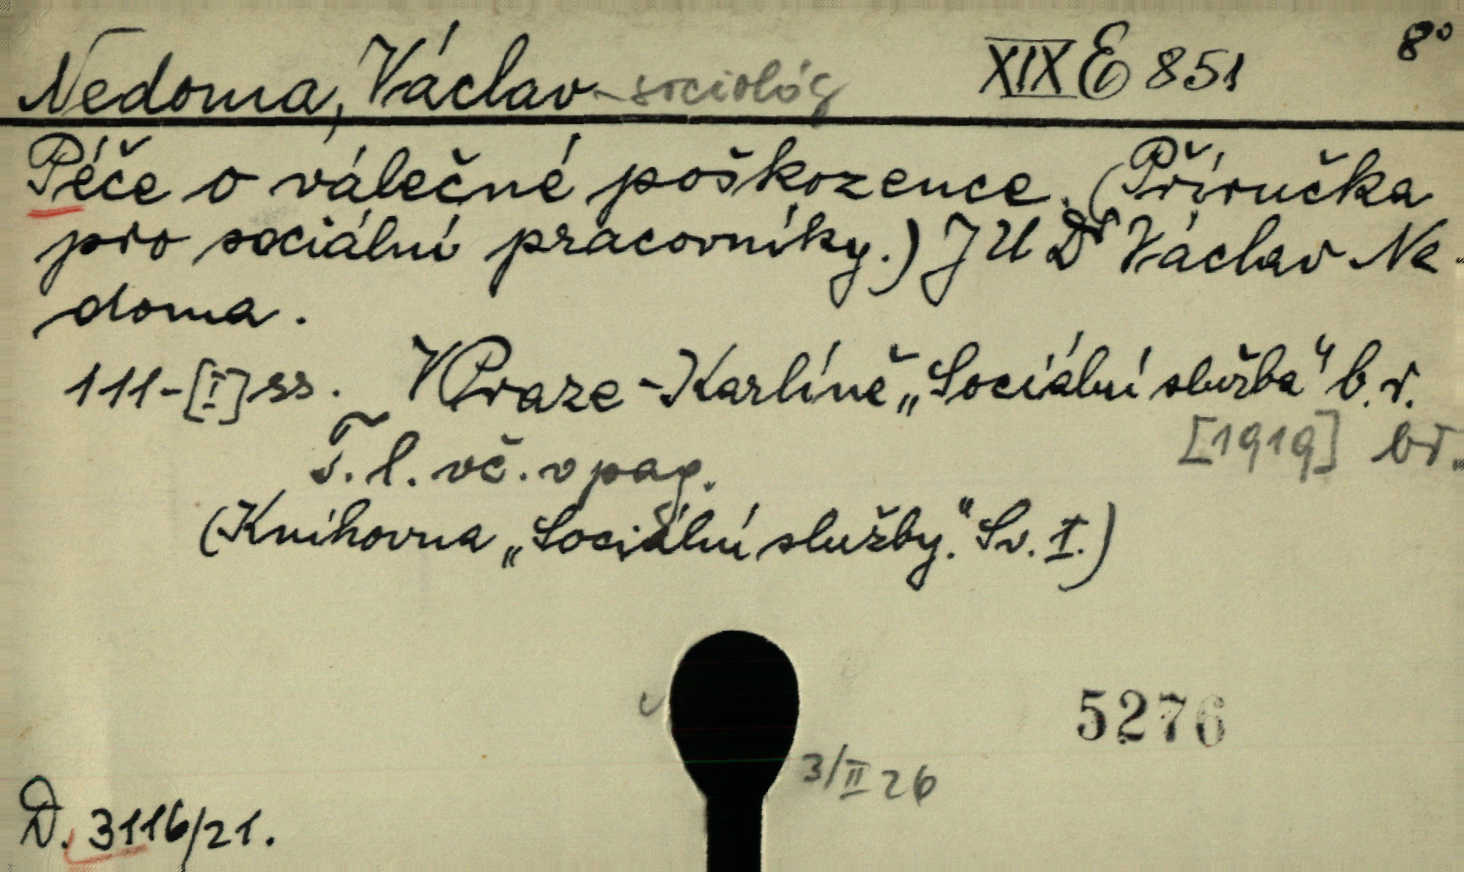 Nedoma, Václav - sociológ XIX E 851 8°
Péče o válečné poškozence. (Příručka
pro sociální pracovníky.) JUDr Václav Ne-
doma.
111-[I] ss. V Praze - Karlíně „Sociální služba" b. r.
[1919] br.
T. l. vč. v pag.
(Knihovna „Sociální služby." Sv. I.)
5276
3/II 26
D. 3116/21.